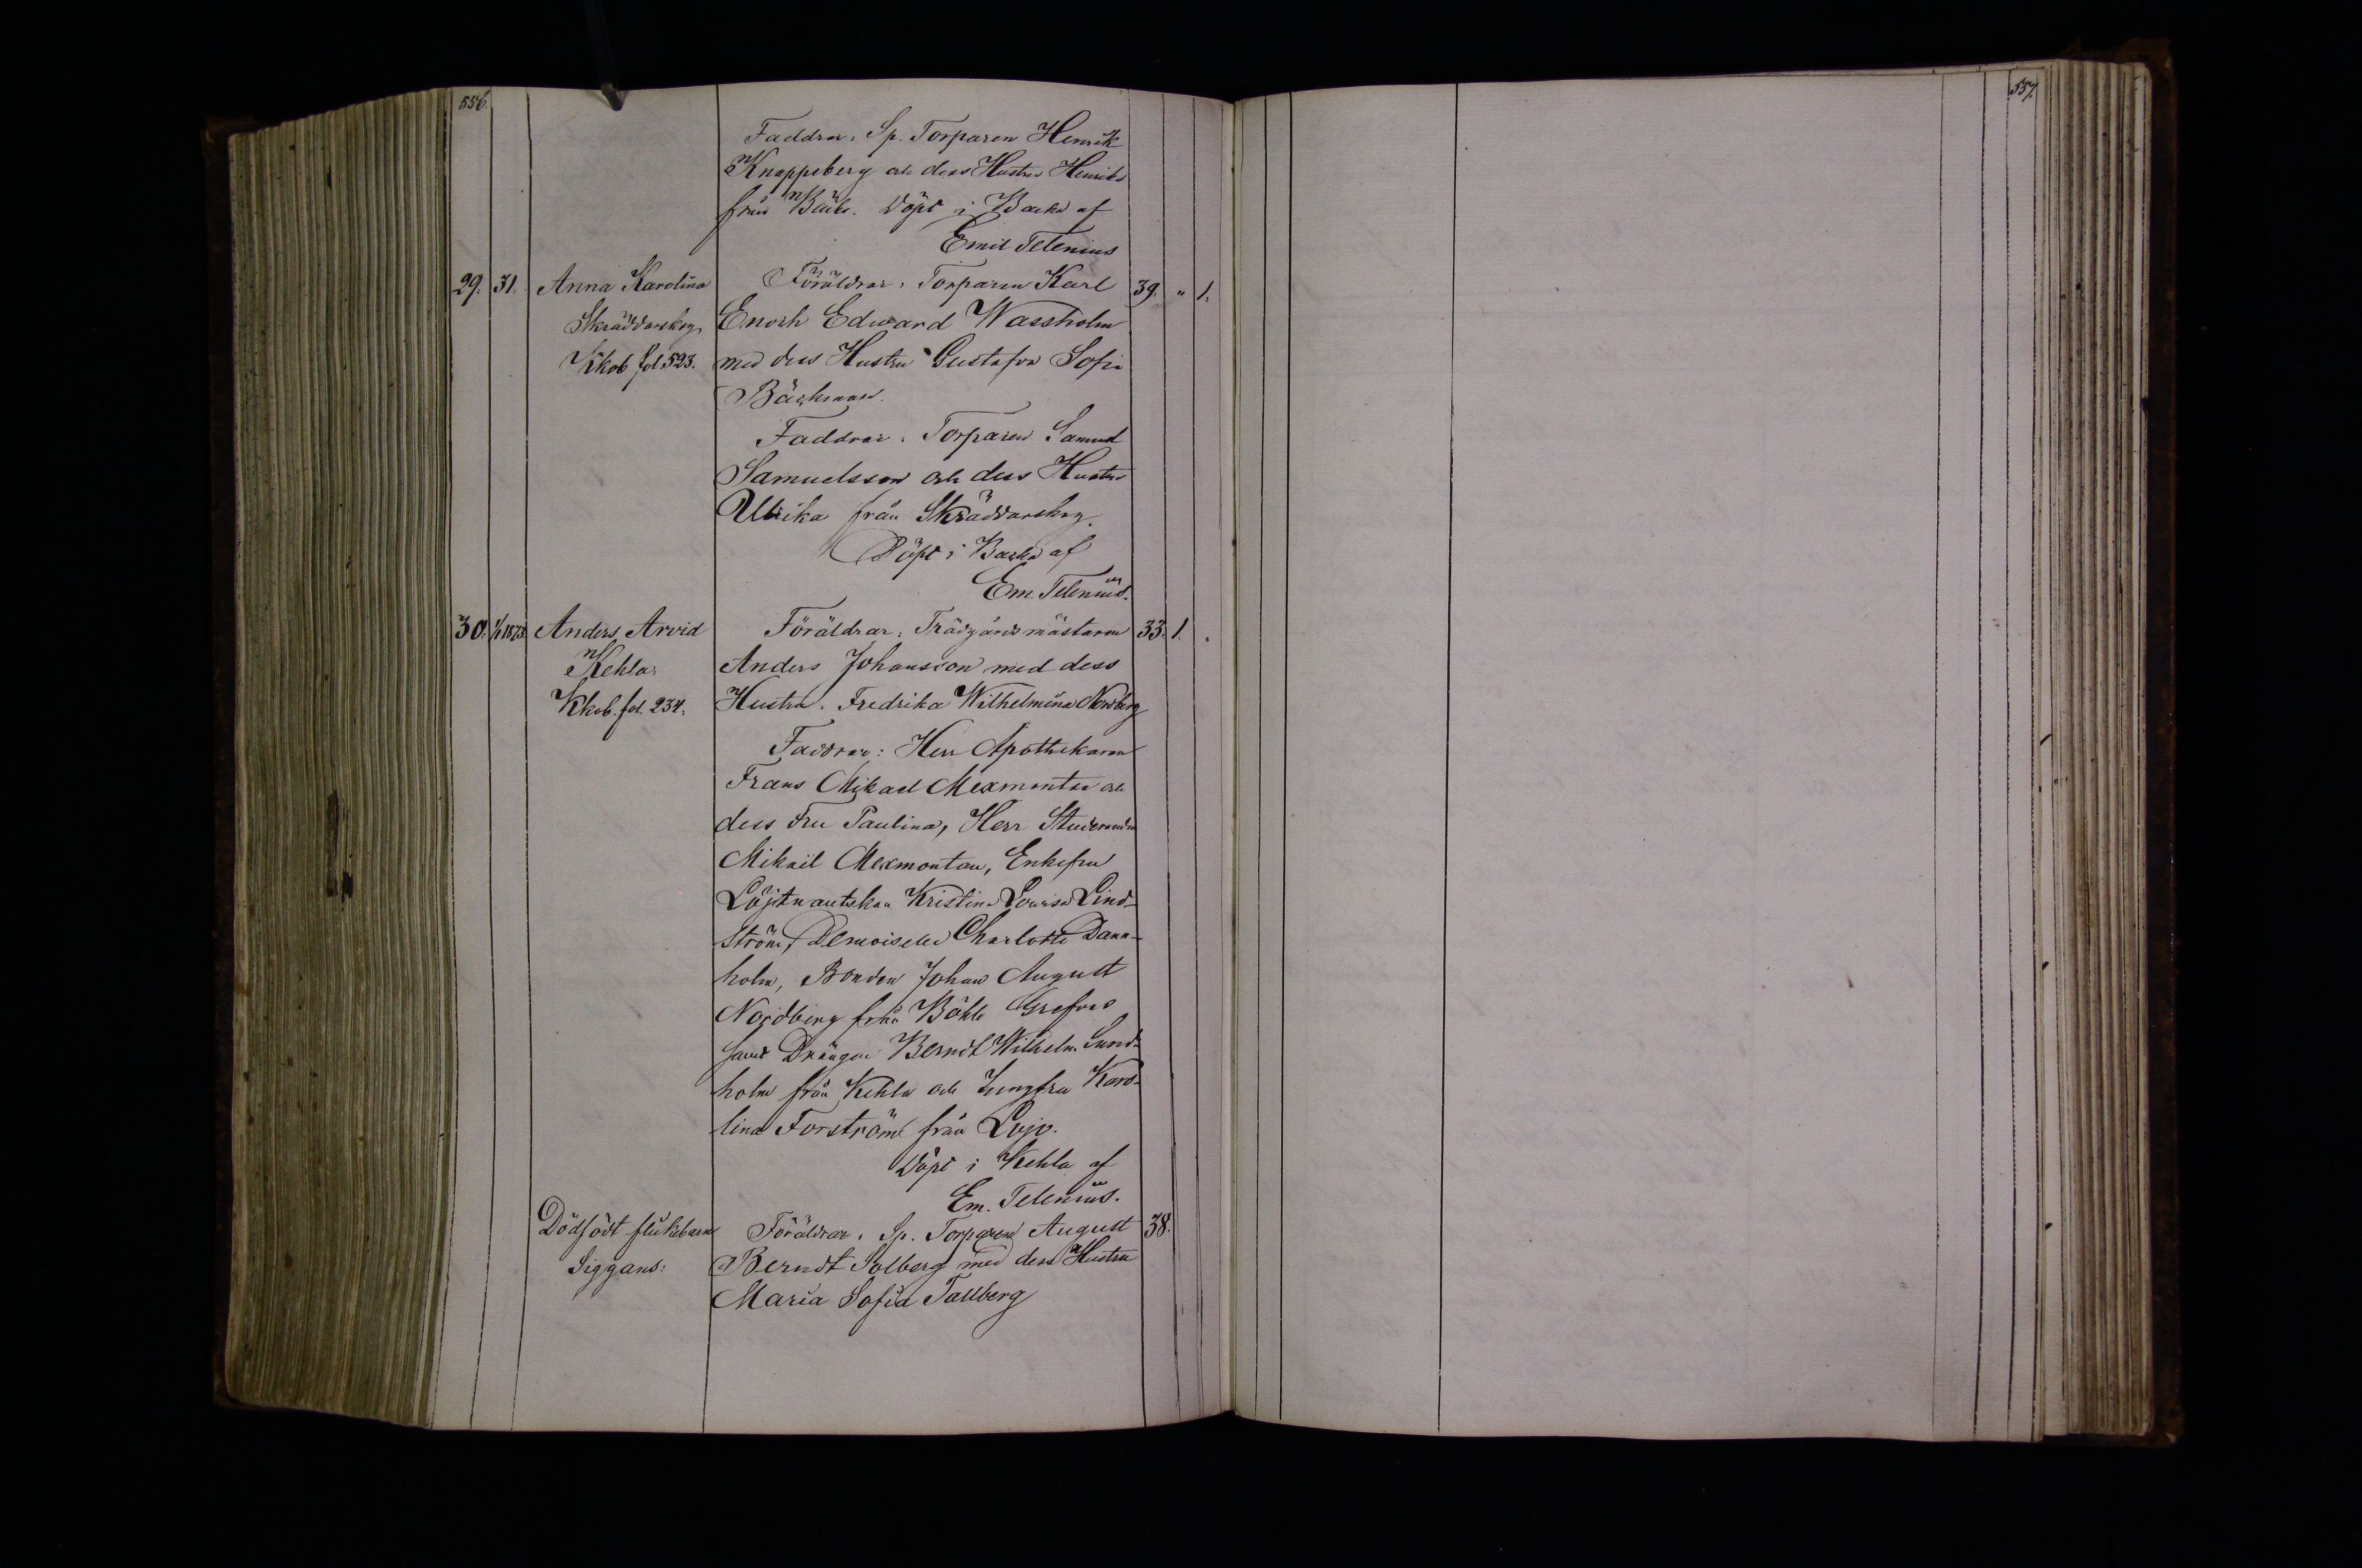 556.
Faddrar: Sp. Torparen Henrik
Knappsberg och dess Hustru Henrika
från Backa. Döpt i Backa af
Emil Telenius
29. 31. Anna Karolina Föräldrar: Torparen Karl 39. " 1.
Skräddarskog, Enoch Edward Wassholm
Kkob fol. 523. med dess Hustru Gustafva Sofia
Bäckman.
Faddrar: Torparen Samuel
Samuelsson och dess Hustru
Ulrika från Skräddarskog.
Döpt i Backa af
Em. Telenius.
30. 1/1 1873 Anders Arvid Föräldrar: Trädgårdsmästaren 33. 1. "
Kehla, Anders Johansson med dess
Kkob. fol. 234. Hustru Fredrika Wilhelmina Nordberg
Faddrar: Herr Apothekaren
Frans Mikael Mexmontan och
dess Fru Paulina, Herr Studeranden
Mikail Mexmontan, Enkefru
Löjtnantskan Kristina Lovisa Lind-
ström, Demoiselle Charlotte Dann-
holm, Bonden Johan August
Nordberg från Böhle Grefvas
samt Drängen Berndt Wilhelm Lund-
holm från Kehla och Jungfru Karo-
lina Forström från Lojo.
Döpt i Kehla af
Em. Telenius.
Dödfödt flickebarn Föräldrar: Sp. Torparen August 38.
Siggans: Berndt Solberg med dess Hustru
Maria Sofia Tallberg
557.